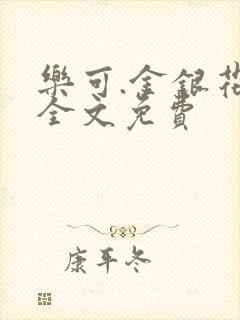 樂可.金銀花
全文免費
康平冬